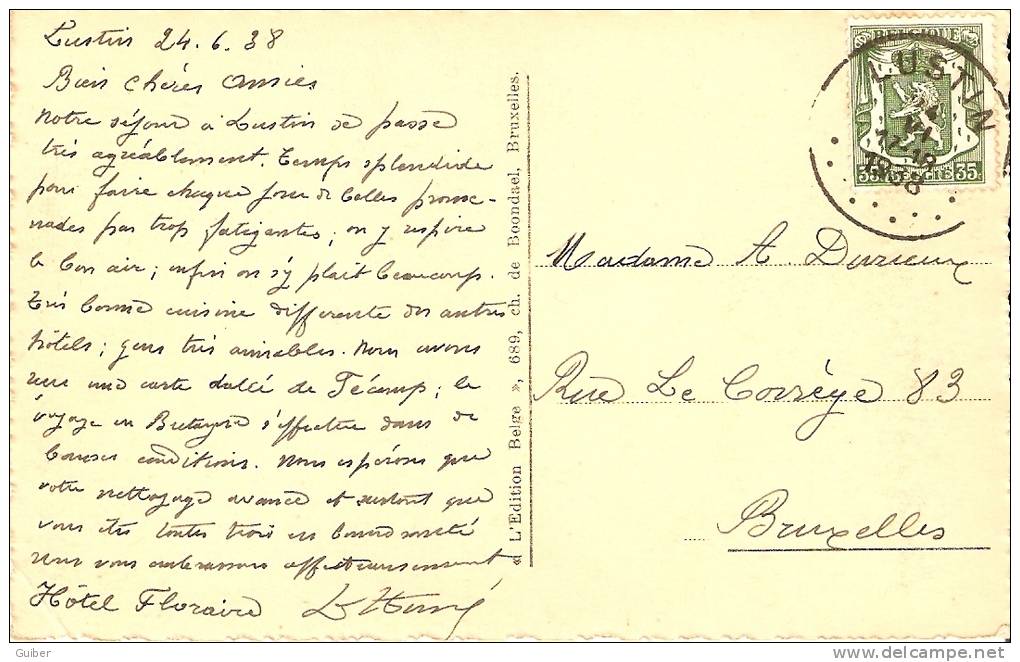 Lustin 24.6.38
Bien chères Amies
Notre séjour à Lustin se passe
très agréablement. Temps splendide
pour faire chaque jour de belles prome-
nades pas trop fatigantes; on y respire
le bon air; enfin on s'y plait beaucoup.
Très bonne cuisine differente des autres
hôtels; gens très aimables. Nous avons
une carte de Fécamp; le
voyage en Bretagne s'effectue dans de
bonnes conditions. Nous espérons que
votre nettoyage avance et surtout que
vous êtes toutes trois en bonne santé
nous vous embrassons affectueusement
Hôtel Floraire
« L'Edition Belge », 689, ch. de Boondael, Bruxelles.
BELGIQUE
35 BELGIE 35
LUSTIN
VI
17-18
1938
Madame A.
Rue Le Corrège 83
Bruxelles
Guiber
http://www.delcampe.net